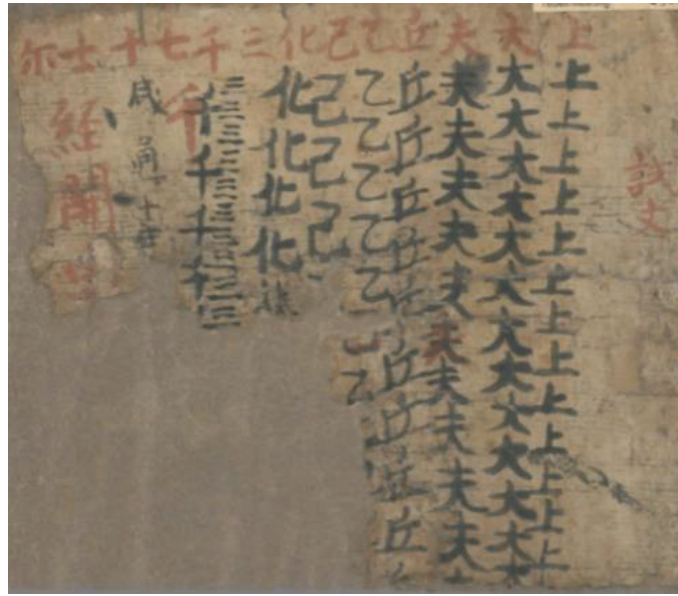 上大夫丘乙己化三千七十士尔
文
上上上上上上上上上上上上上
大大大大大大大大大大大大大
夫夫夫夫夫夫夫夫夫夫
丘丘丘丘丘丘丘丘丘
乙乙乙乙乙乙乙
己己己
化化化化
三三三三三三三
千千千千
千
咸通十年
經開